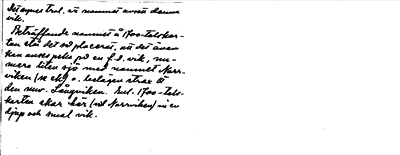 Det synes trol. att namnet avsett denna
vik.
Beträffande namnet å 1700-talskar-
tan står det så placerat, att det även
kan anses peka på en f.d. vik, nu-
mera liten sjö med namnet Norr-
viken (se ek) o. belägen strax O
den nuv. Långviken. Enl. 1700-tals-
kartan skar här (vid Norrviken) in en
djup och smal vik.